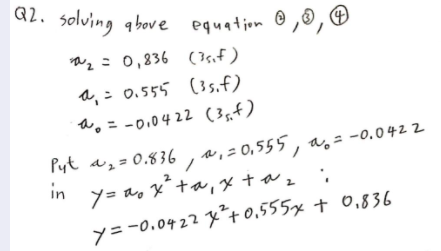 Q2. solving above equation ②, ③, ④
a₂ = 0.836 (3s.f)
a₁ = 0.555 (3s.f)
a₀ = -0.0422 (3s.f)
Put a₂ = 0.836, a₁ = 0.555, a₀ = -0.0422
in y = a₀x² + a₁x + a₂ :
y = -0.0422x² + 0.555x + 0.836